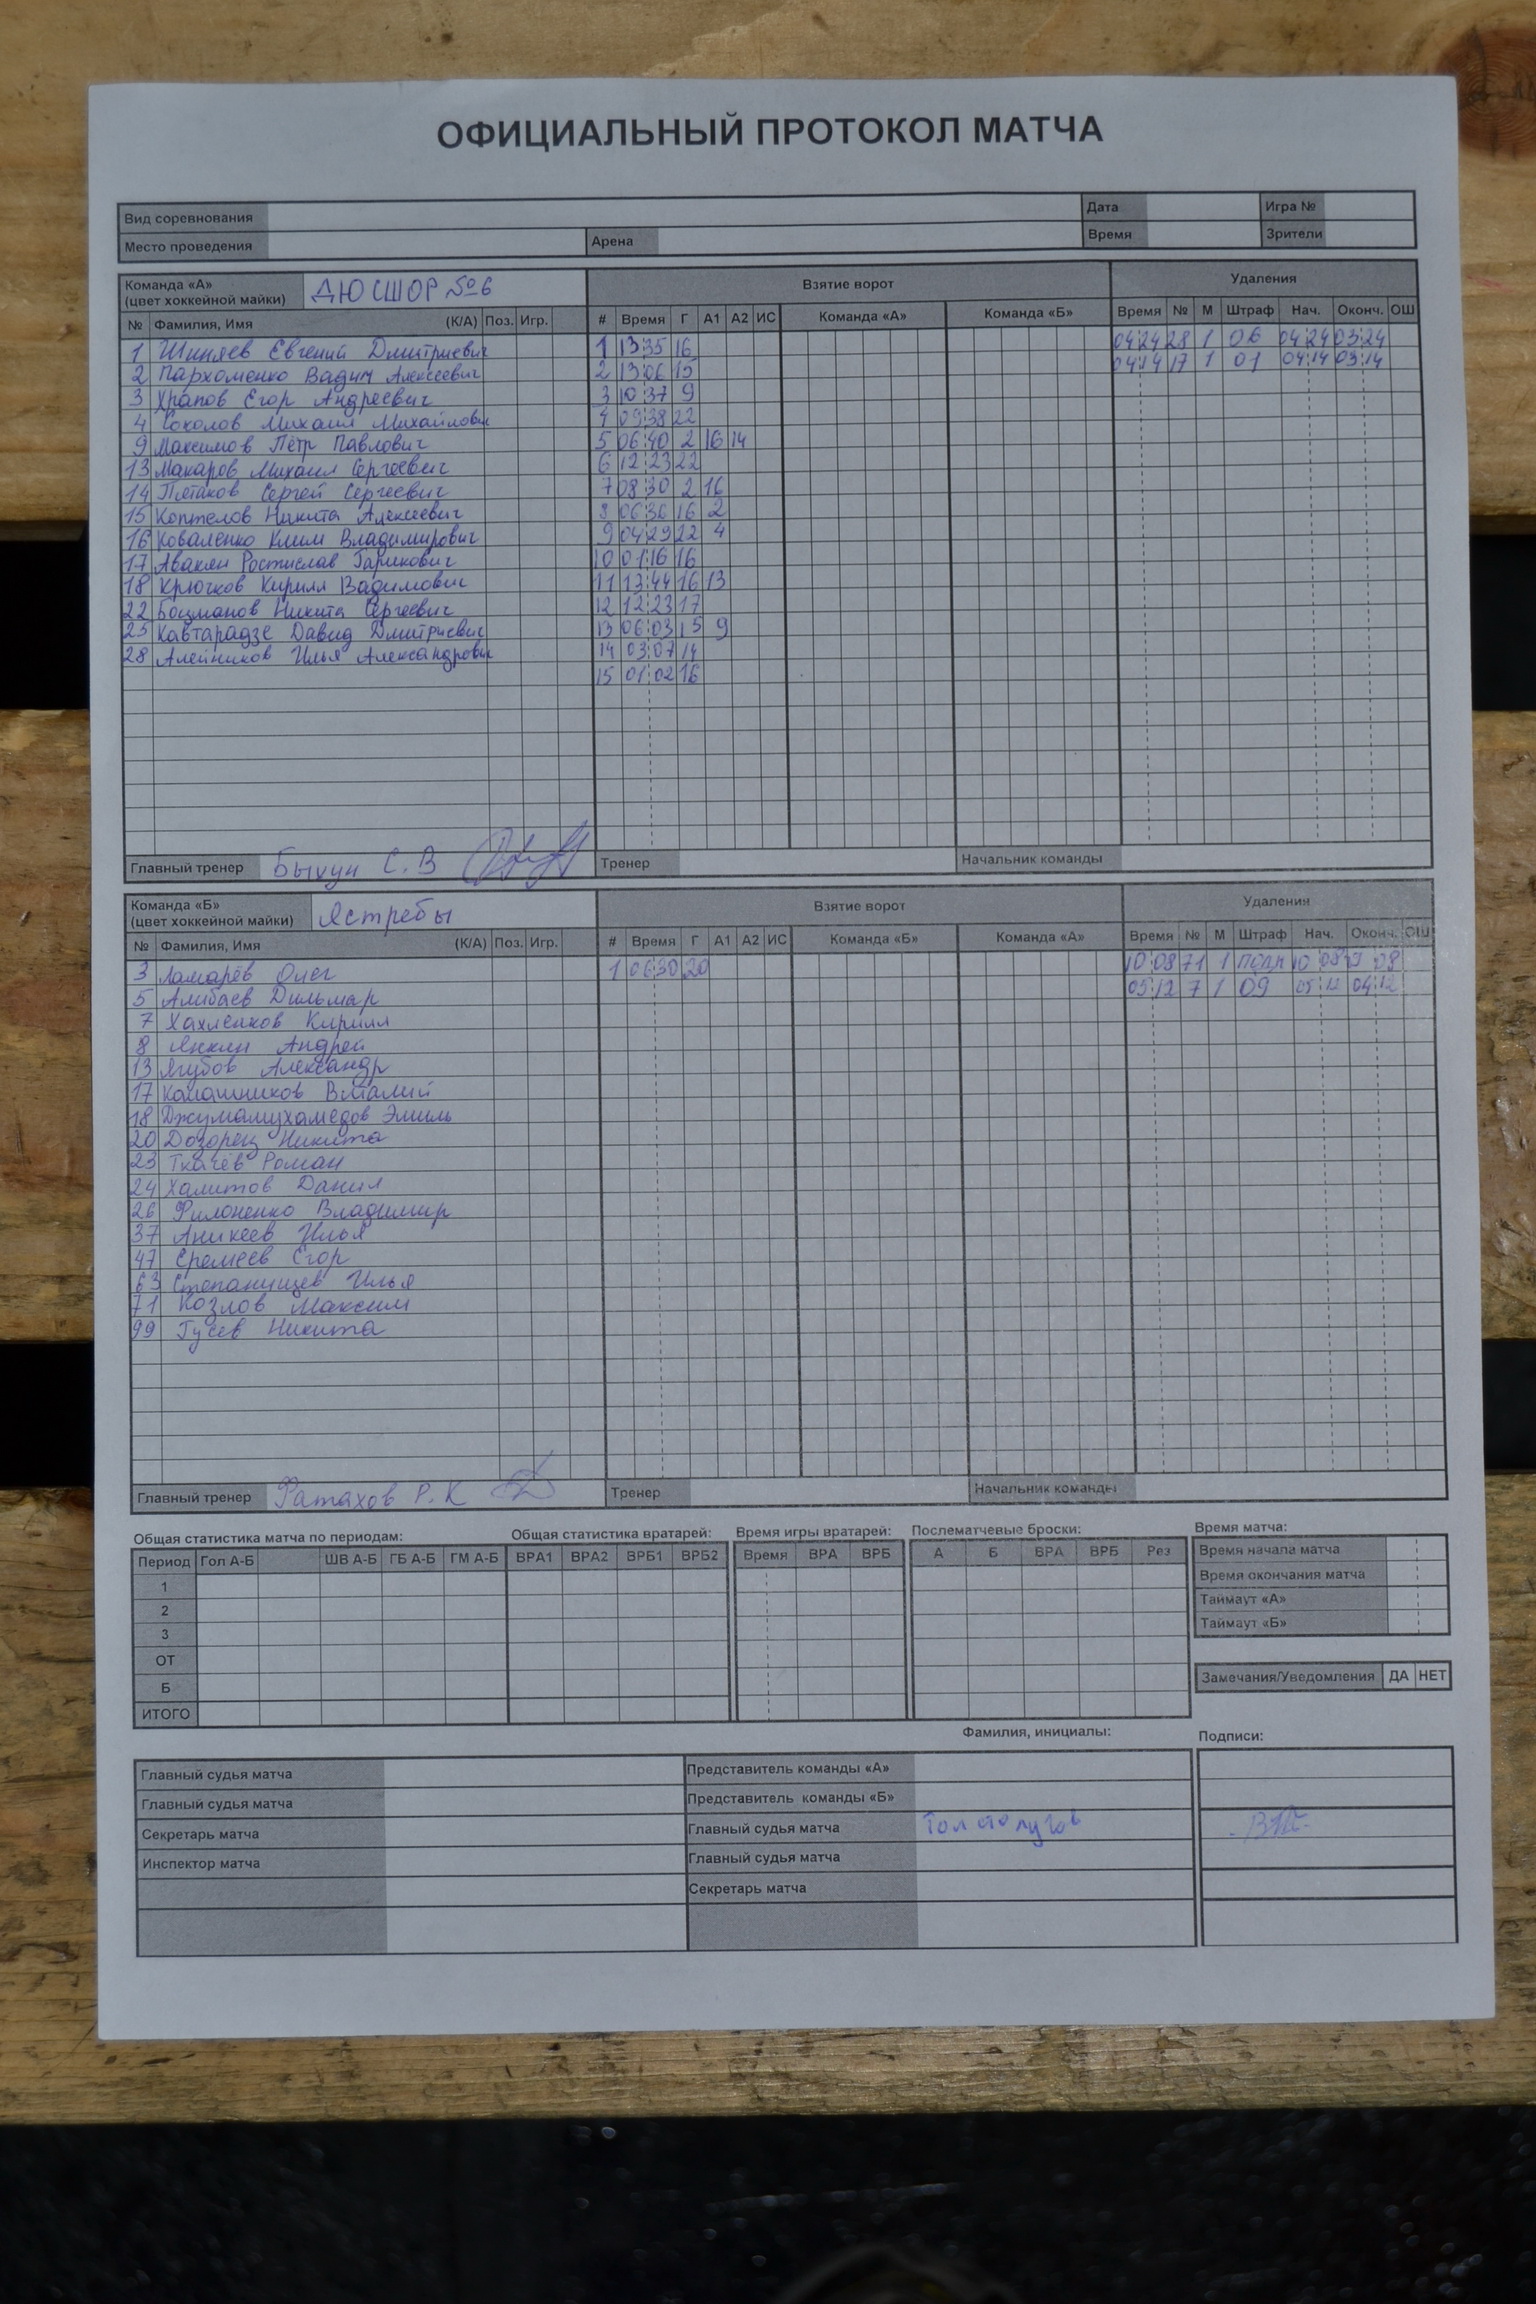 ОФИЦИАЛЬНЫЙ ПРОТОКОЛ МАТЧА
Вид соревнования Дата Игра №
Место проведения Арена Время Зрители
Команда «А» (цвет хоккейной майки) ДЮСШОР №6 Взятие ворот Удаления
№ Фамилия, Имя (К/А) Поз. Игр. # Время Г А1 А2 ИС Команда «А» Команда «Б» Время № М Штраф Нач. Оконч. ОШ
1 Шиняев Евгений Дмитриевич 1 13 35 16 04 24 28 1 06 04 24 03 24
2 Пархоменко Вадим Алексеевич 2 13 06 15 04 14 17 1 01 04 14 03 14
3 Храпов Егор Андреевич 3 10 37 9
4 Соколов Михаил Михайлович 4 09 38 22
9 Максимов Пётр Павлович 5 06 40 2 16 14
13 Макаров Михаил Сергеевич 6 12 23 22
14 Пятаков Сергей Сергеевич 7 08 30 2 16
15 Коптелов Никита Алексеевич 8 06 36 16 2
16 Коваленко Клим Владимирович 9 04 29 22 4
17 Авакян Ростислав Гарикович 10 01 16 16
18 Крючков Кирилл Вадимович 11 13 44 16 13
22 Боцманов Никита Сергеевич 12 12 23 17
25 Кавтарадзе Давид Дмитриевич 13 06 03 15 9
28 Алейников Илья Александрович 14 03 07 14
15 01 02 16
Главный тренер Быхун С.В Тренер Начальник команды
Команда «Б» (цвет хоккейной майки) Ястребы Взятие ворот Удаления
№ Фамилия, Имя (К/А) Поз. Игр. # Время Г А1 А2 ИС Команда «Б» Команда «А» Время № М Штраф Нач. Оконч. ОШ
3 Ламарёв Олег 1 06 30 20 10 08 71 1 10 08 09 08
5 Алибаев Дильмар 05 12 7 1 09 05 12 04 12
7 Кирилл
8 Янкин Андрей
13 Ягубов Александр
17 Калашников Виталий
18 Джумамухамедов Эмиль
20 Дозорец Никита
23 Ткачёв Роман
24 Халитов Данил
26 Филоненко Владимир
37 Аникеев Илья
47 Еремеев Егор
63 Степанищев Илья
71 Козлов Максим
99 Гусев Никита
Главный тренер Фатахов Р.К Тренер Начальник команды
Общая статистика матча по периодам: Общая статистика вратарей: Время игры вратарей: Послематчевые броски: Время матча:
Период Гол А-Б ШВ А-Б ГБ А-Б ГМ А-Б ВРА1 ВРА2 ВРБ1 ВРБ2 Время ВРА ВРБ А Б ВРА ВРБ Рез Время начала матча
1 Время окончания матча
2 Таймаут «А»
3 Таймаут «Б»
ОТ
Б Замечания/Уведомления ДА НЕТ
ИТОГО
Фамилия, инициалы: Подписи:
Главный судья матча Представитель команды «А»
Главный судья матча Представитель команды «Б»
Секретарь матча Главный судья матча Толстолугов
Инспектор матча Главный судья матча
Секретарь матча